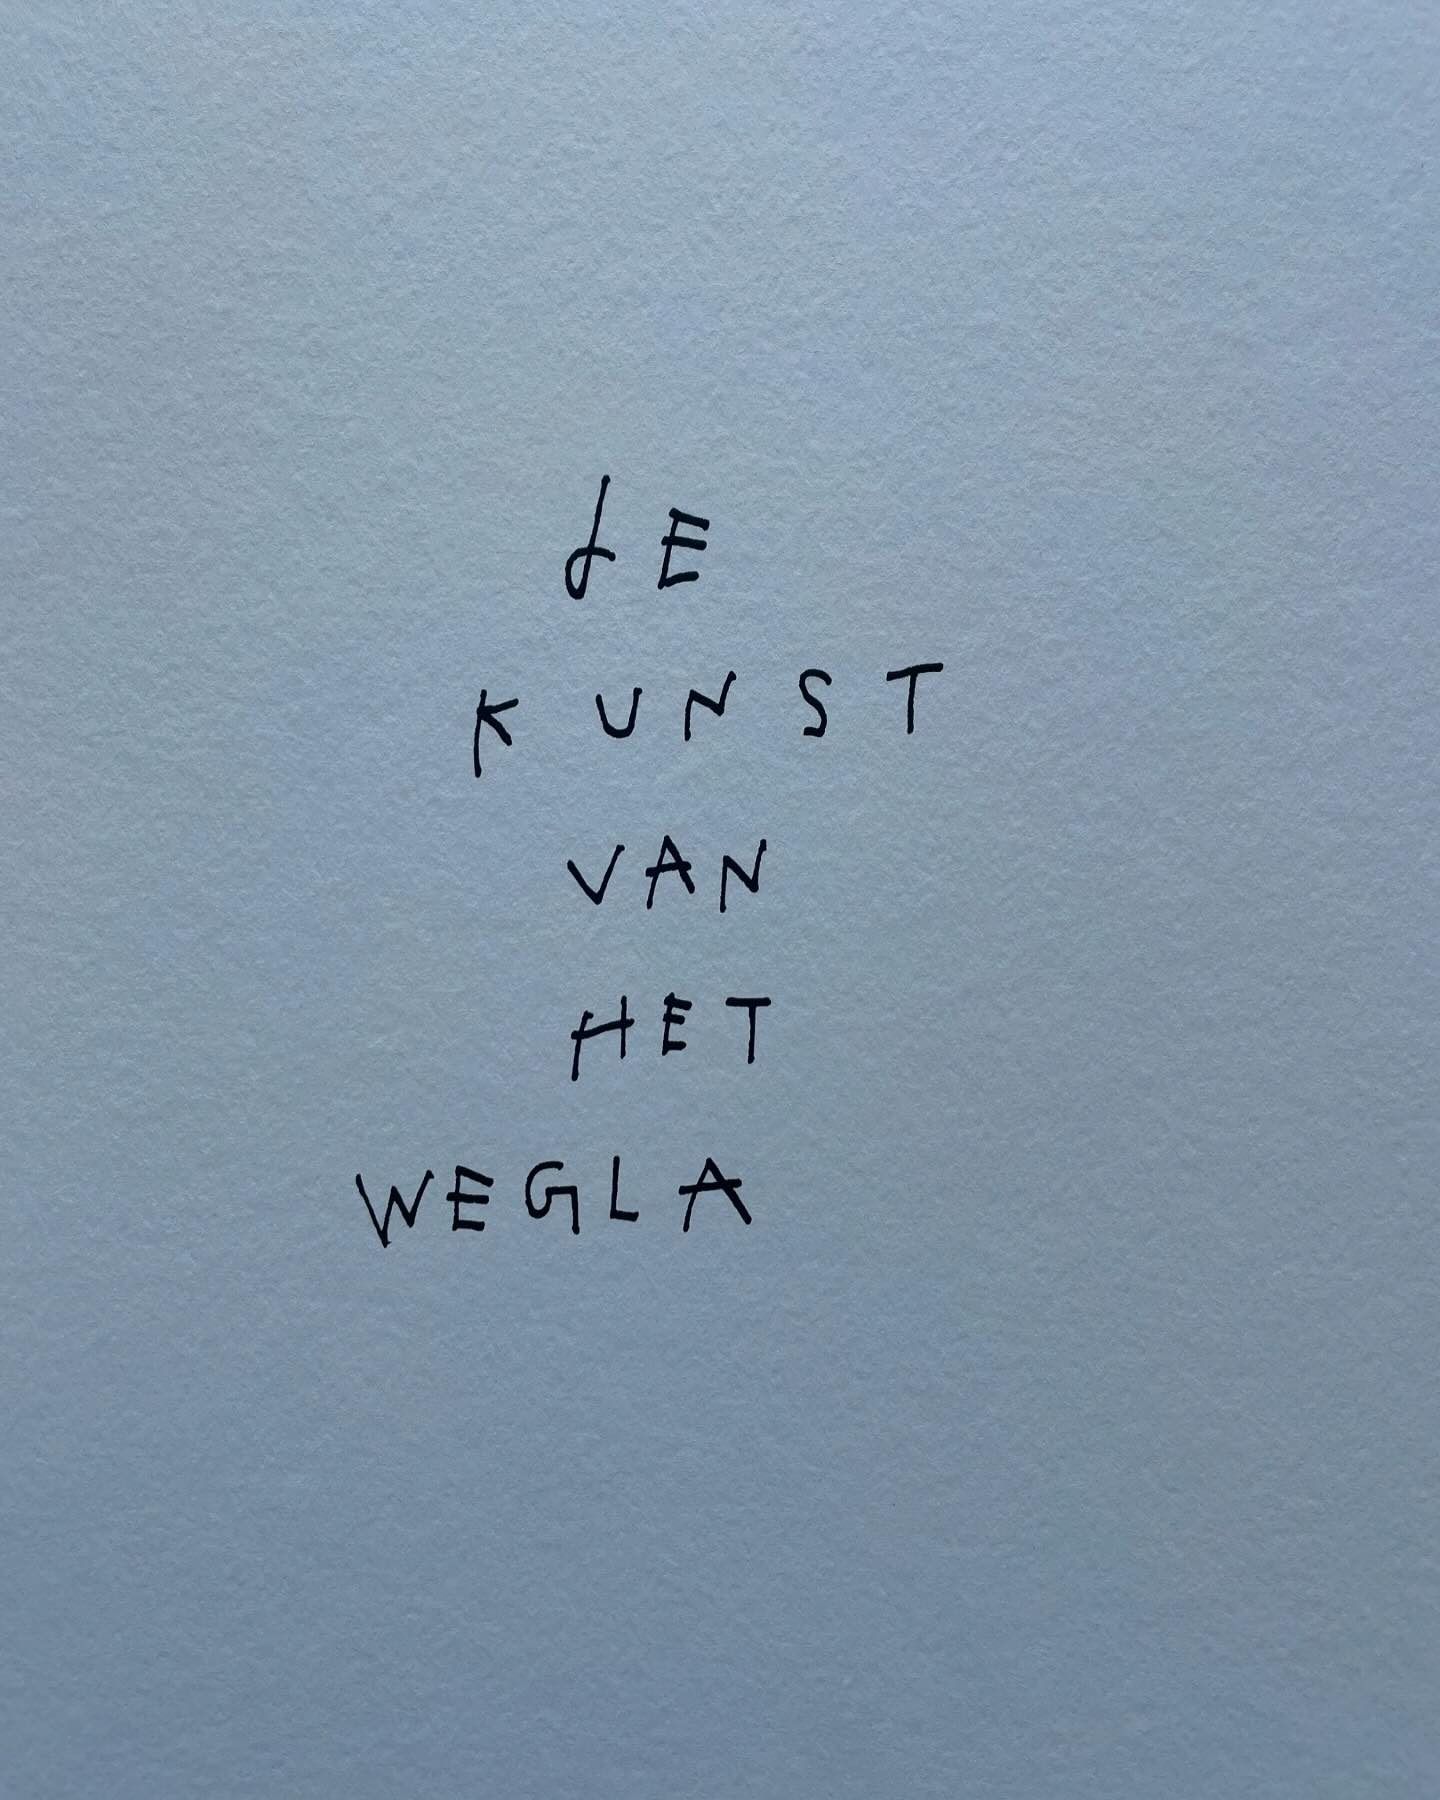 dE
KUNST
VAN
HET
WEGLA